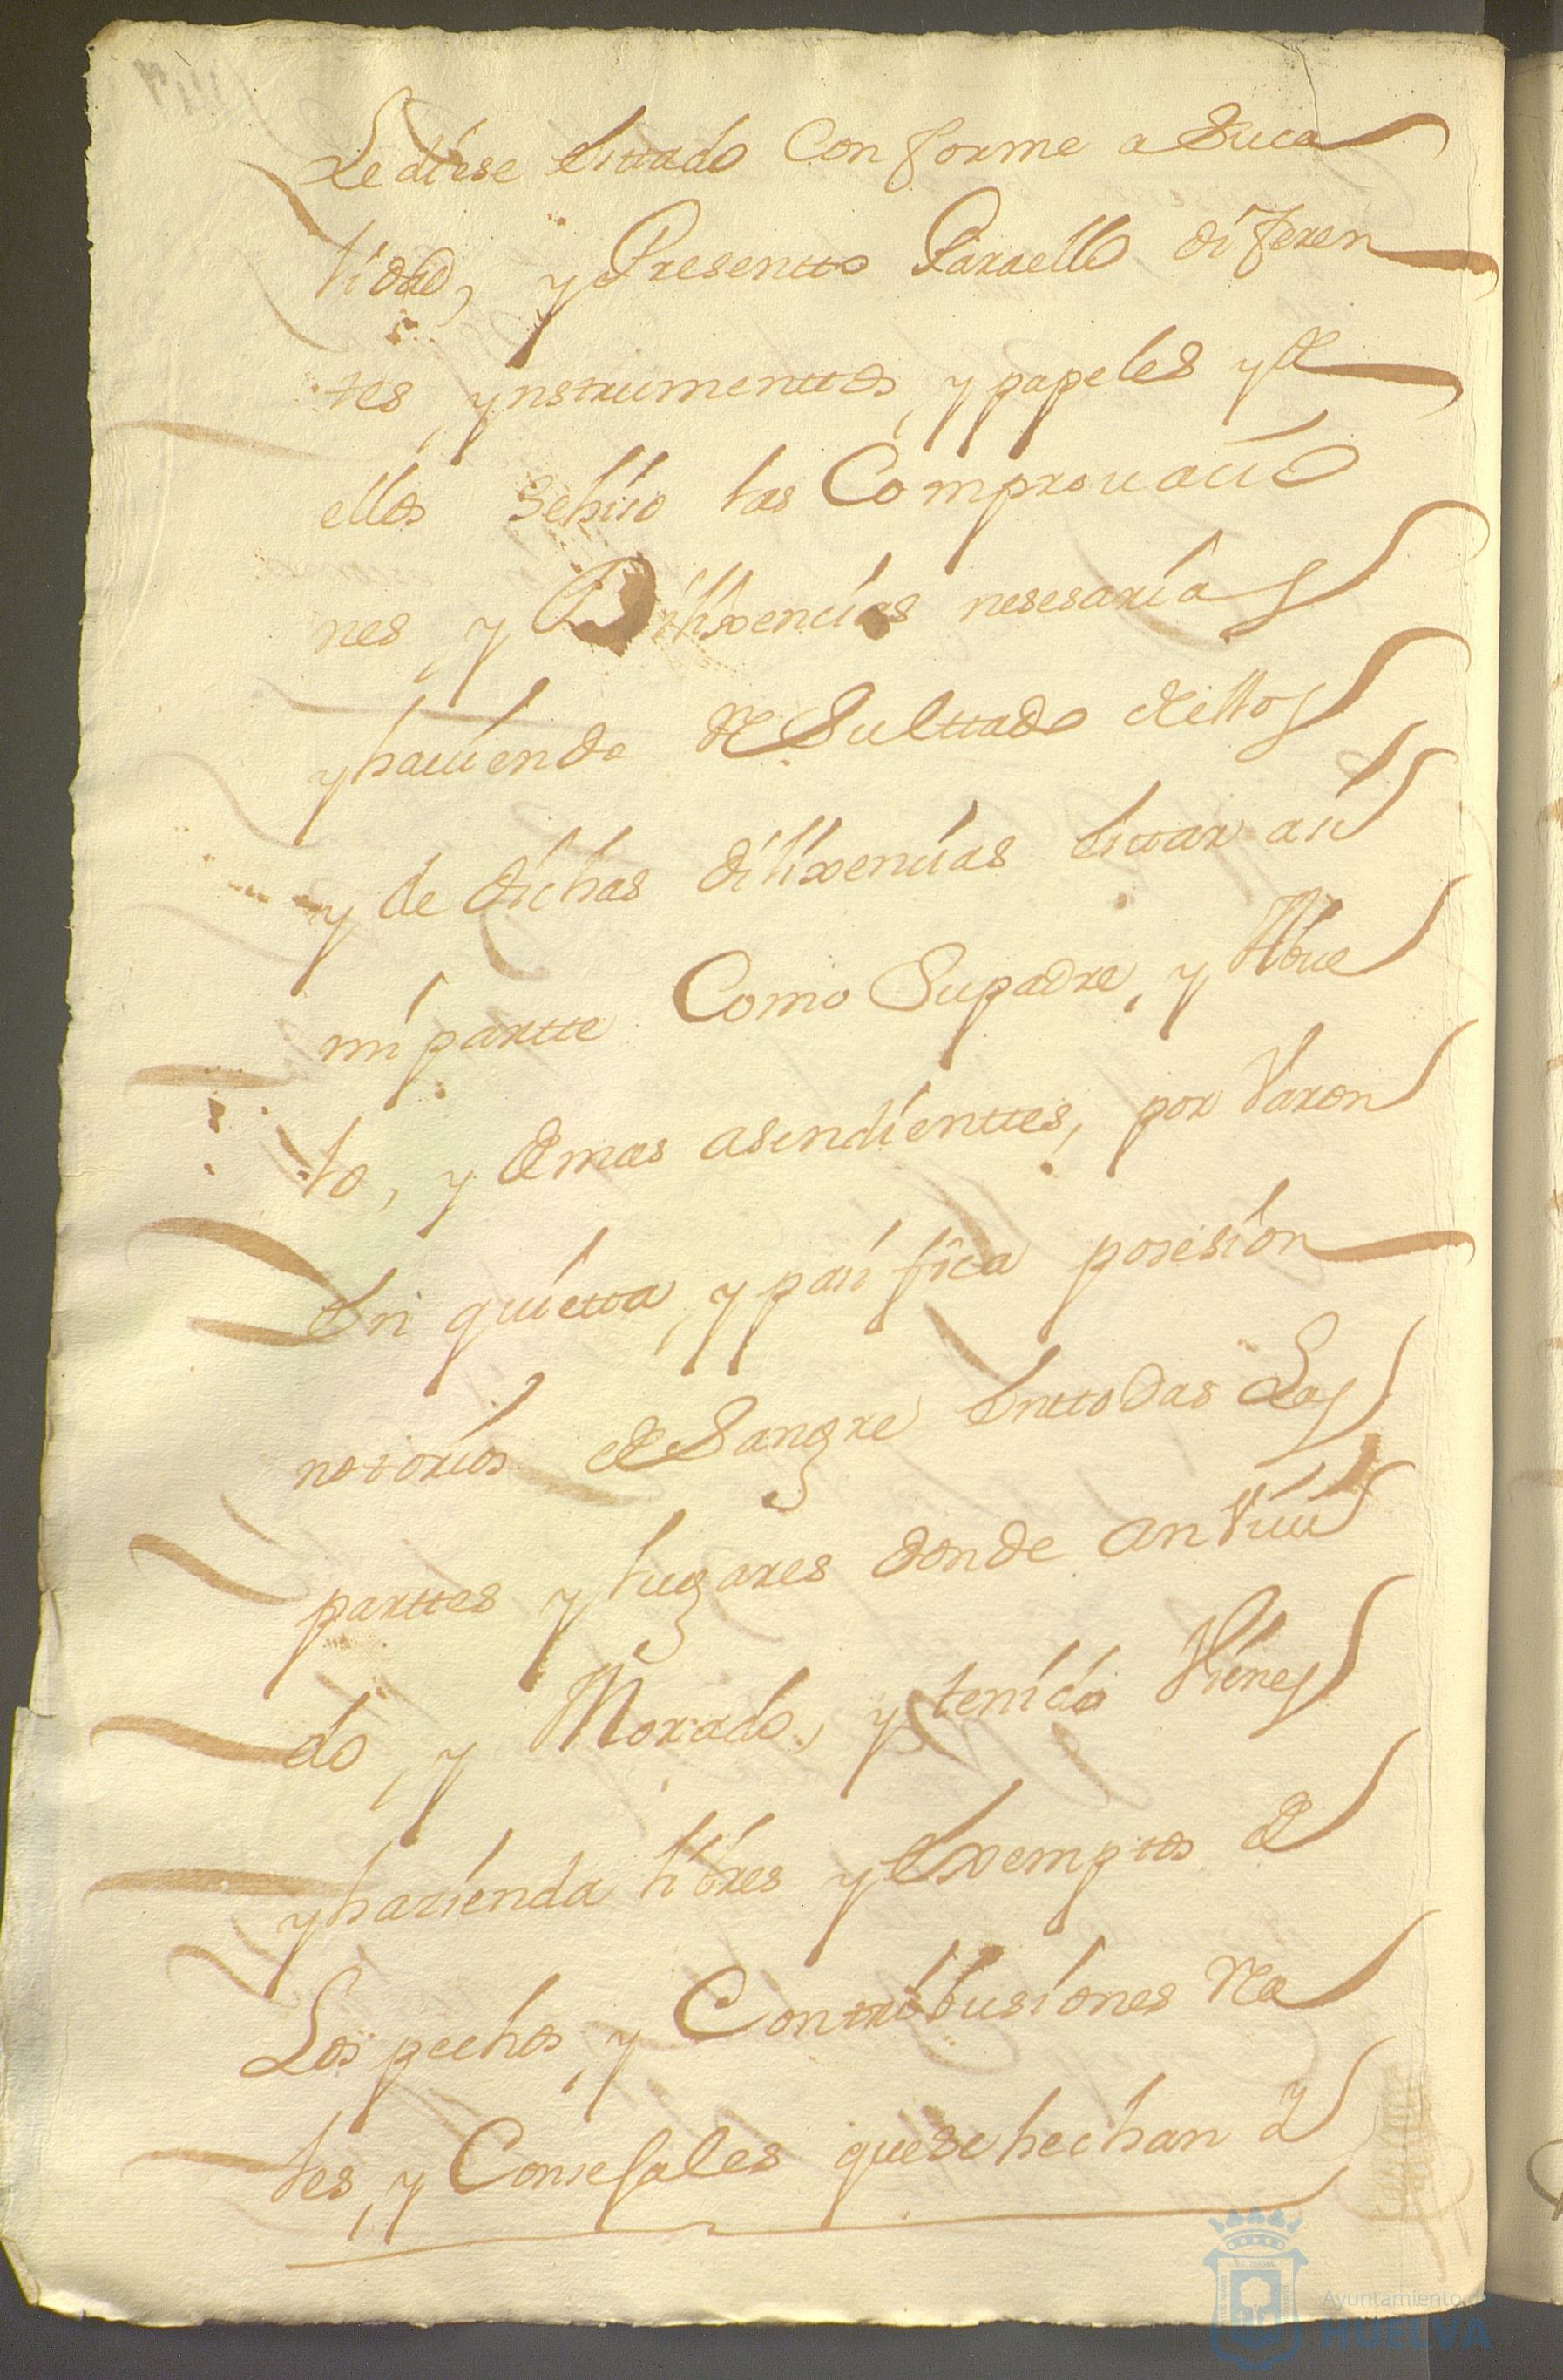 Le diese Estado Conforme a Suca
lidad, y Presentto Paraello diferen
tes ynstrumenttos, y papeles y de
ellos sehizo las Comprouacio
nes y Dilixencias nesesarias
y hauiendo Resulttado dellos
y de dichas dilixencias Estar asi
mi partte Como Supadre, y Abue
lo, y demas asendienttes, por Varon
En quietta, y pacifica posesion
notorios de Sangre Enttodas Las
parttes y lugares donde an Viui
do, y Morado, y tenido Vienes
y hazienda libres y Exemptos de
Los pechos, y Contribusiones Rea
les, y Consejales quese hechan, y
Ayuntamiento de
HUELVA